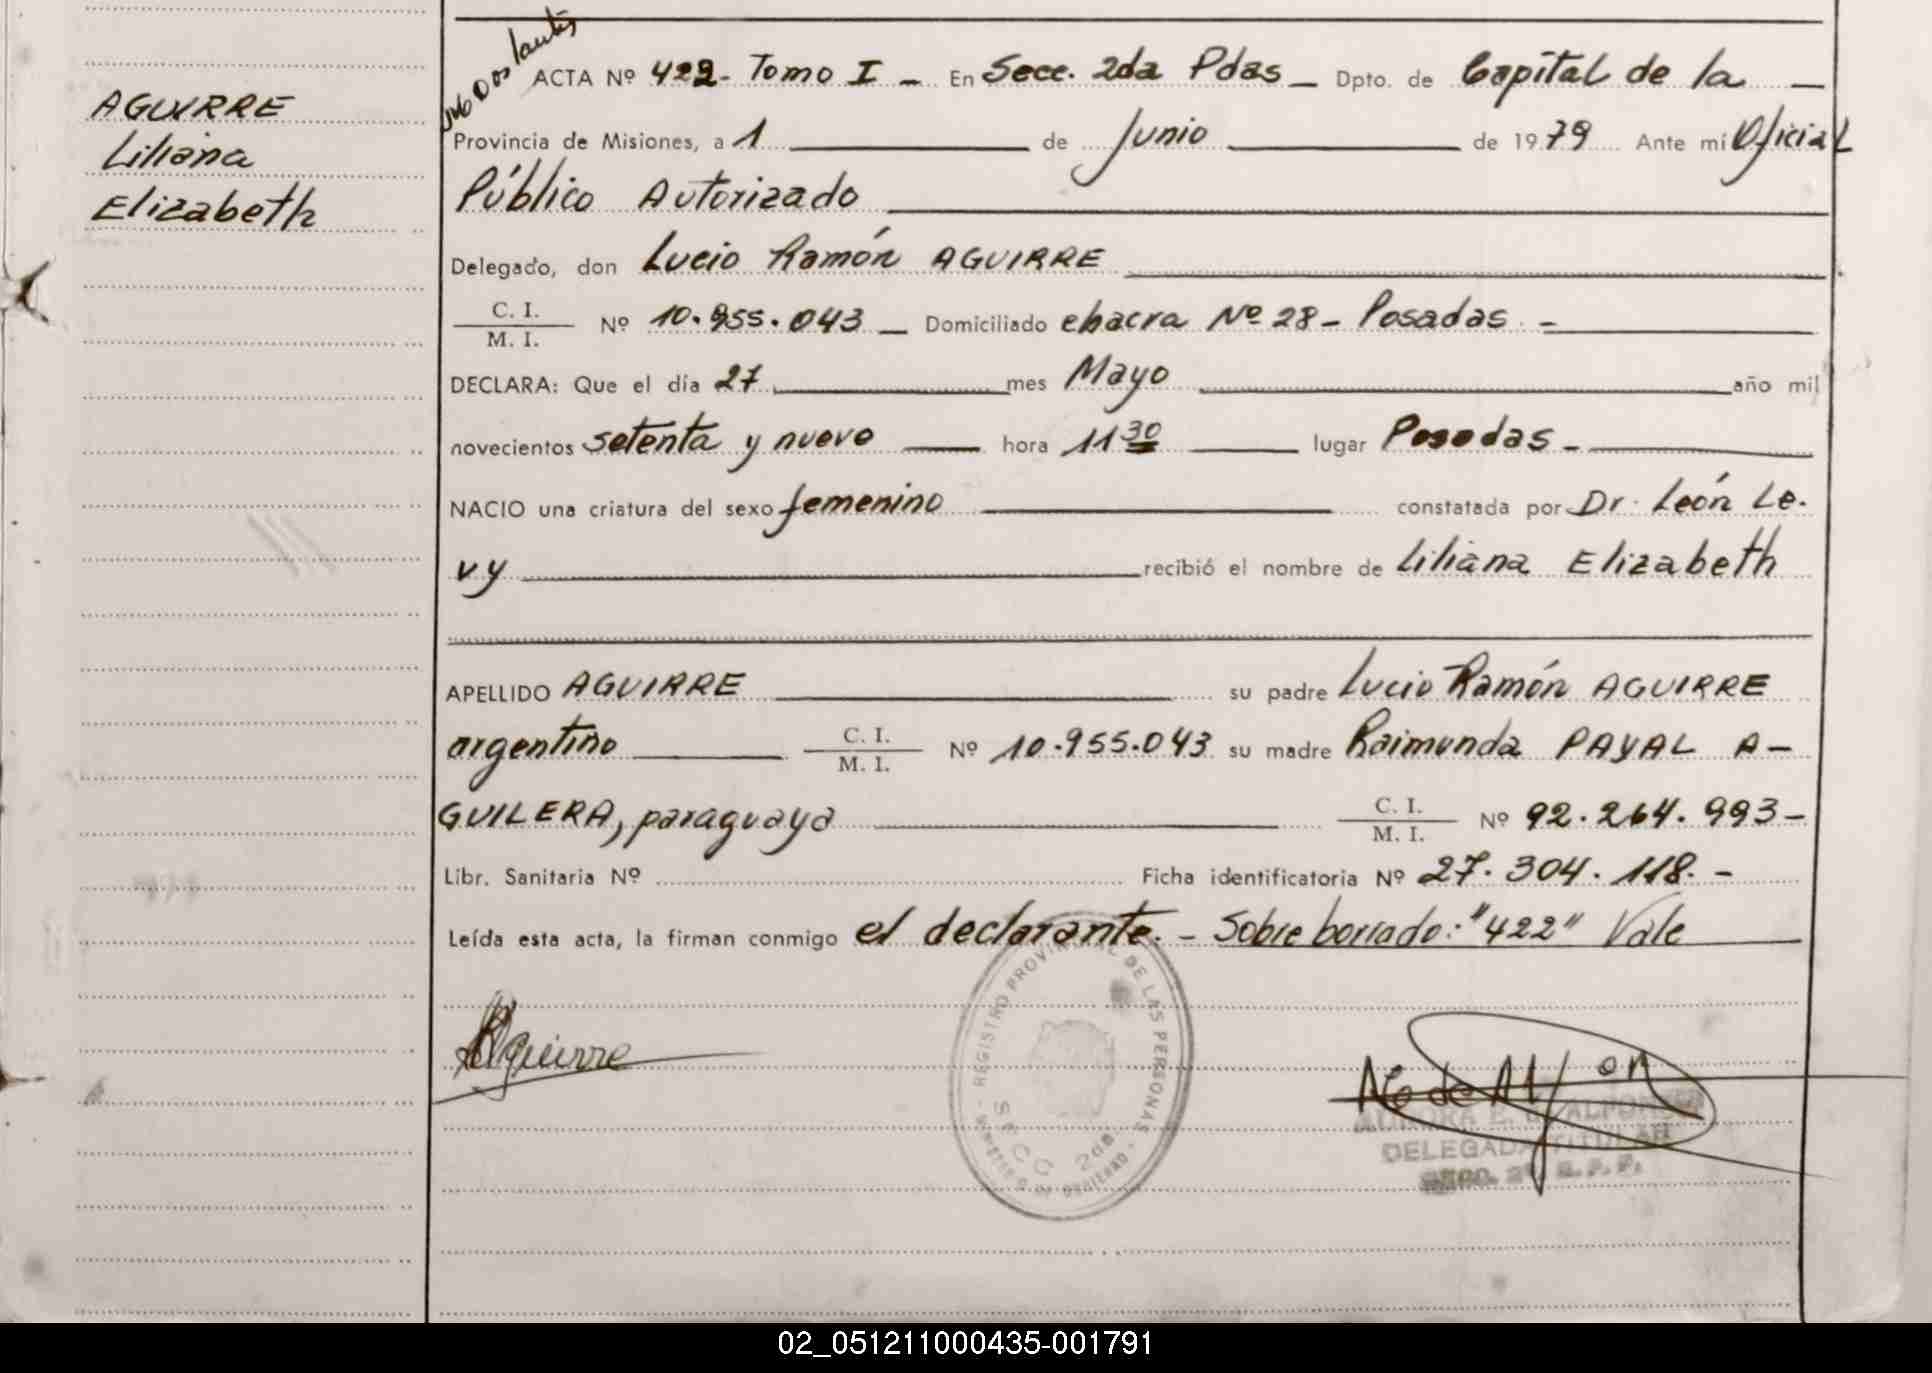 AGUIRRE
Liliana
Elizabeth
ACTA Nº 422- Tomo I - En Secc. 2da Pdas - Dpto. de Capital de la -
Provincia de Misiones, a 1 de Junio de 1979 Ante mí Oficial
Público Autorizado
Delegado, don Lucio Ramón AGUIRRE
C. I.
M. I. Nº 10.955.043 - Domiciliado chacra Nº 28 - Posadas -
DECLARA: Que el día 27 mes Mayo año mil
novecientos setenta y nueve hora 11 30 lugar Posadas -
NACIO una criatura del sexo femenino constatada por Dr. León Le-
vy recibió el nombre de Liliana Elizabeth
APELLIDO AGUIRRE su padre Lucio Ramón AGUIRRE
argentino C. I.
M. I. Nº 10.955.043 su madre Raimunda PAYAL A-
GUILERA, paraguaya C. I.
M. I. Nº 92.264.993-
Libr. Sanitaria Nº Ficha identificatoria Nº 27.304.118.-
Leída esta acta, la firman conmigo el declarante. - Sobre borrado: "422" Vale
Aguirre
REGISTRO PROVINCIAL DE LAS PERSONAS
SECC 2da.
DELEGADA TITULAR
02_051211000435-001791